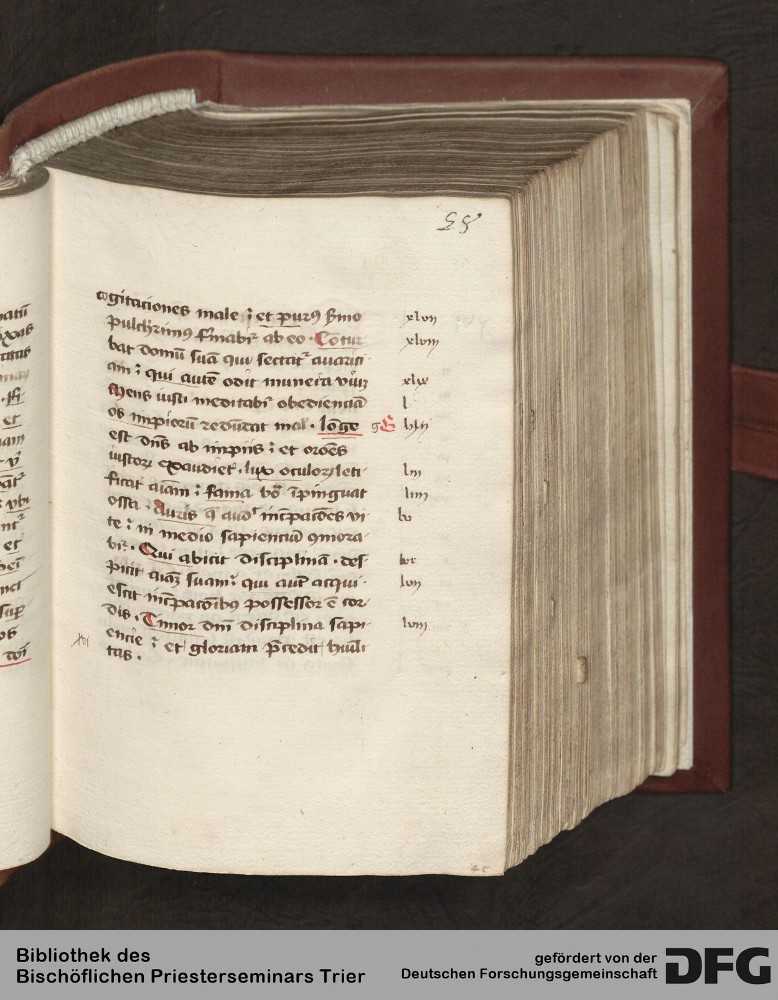 55
cogitaciones male : et purus sermo xlvij
pulcherrimus firmabitur ab eo . Contur xlviij
bat domum suam qui sectatur avarici
am : qui autem odit munera vivit xlix
Mens iusti meditabitur obedienciam l
os impiorum redundat mal . longe
est dominus ab impiis : et oraciones
iustorum exaudiet . lux oculorum leti liij
ficat animam : fama bona inpinguat liiij
ossa . Auris que audit increpaciones vi lv
te : in medio sapiencium commora
bitur . Qui abicit disciplinam . des
picit animam suam : qui autem acqui lvij
escit increpacionibus possessor est cor
dis . Timor domini disciplina sapi lviij
encie : et gloriam precedit humili
tas .
natum
et
nam
ubi
et
Bibliothek des
Bischöflichen Priesterseminars Trier
gefördert von der
Deutschen Forschungsgemeinschaft
DFG